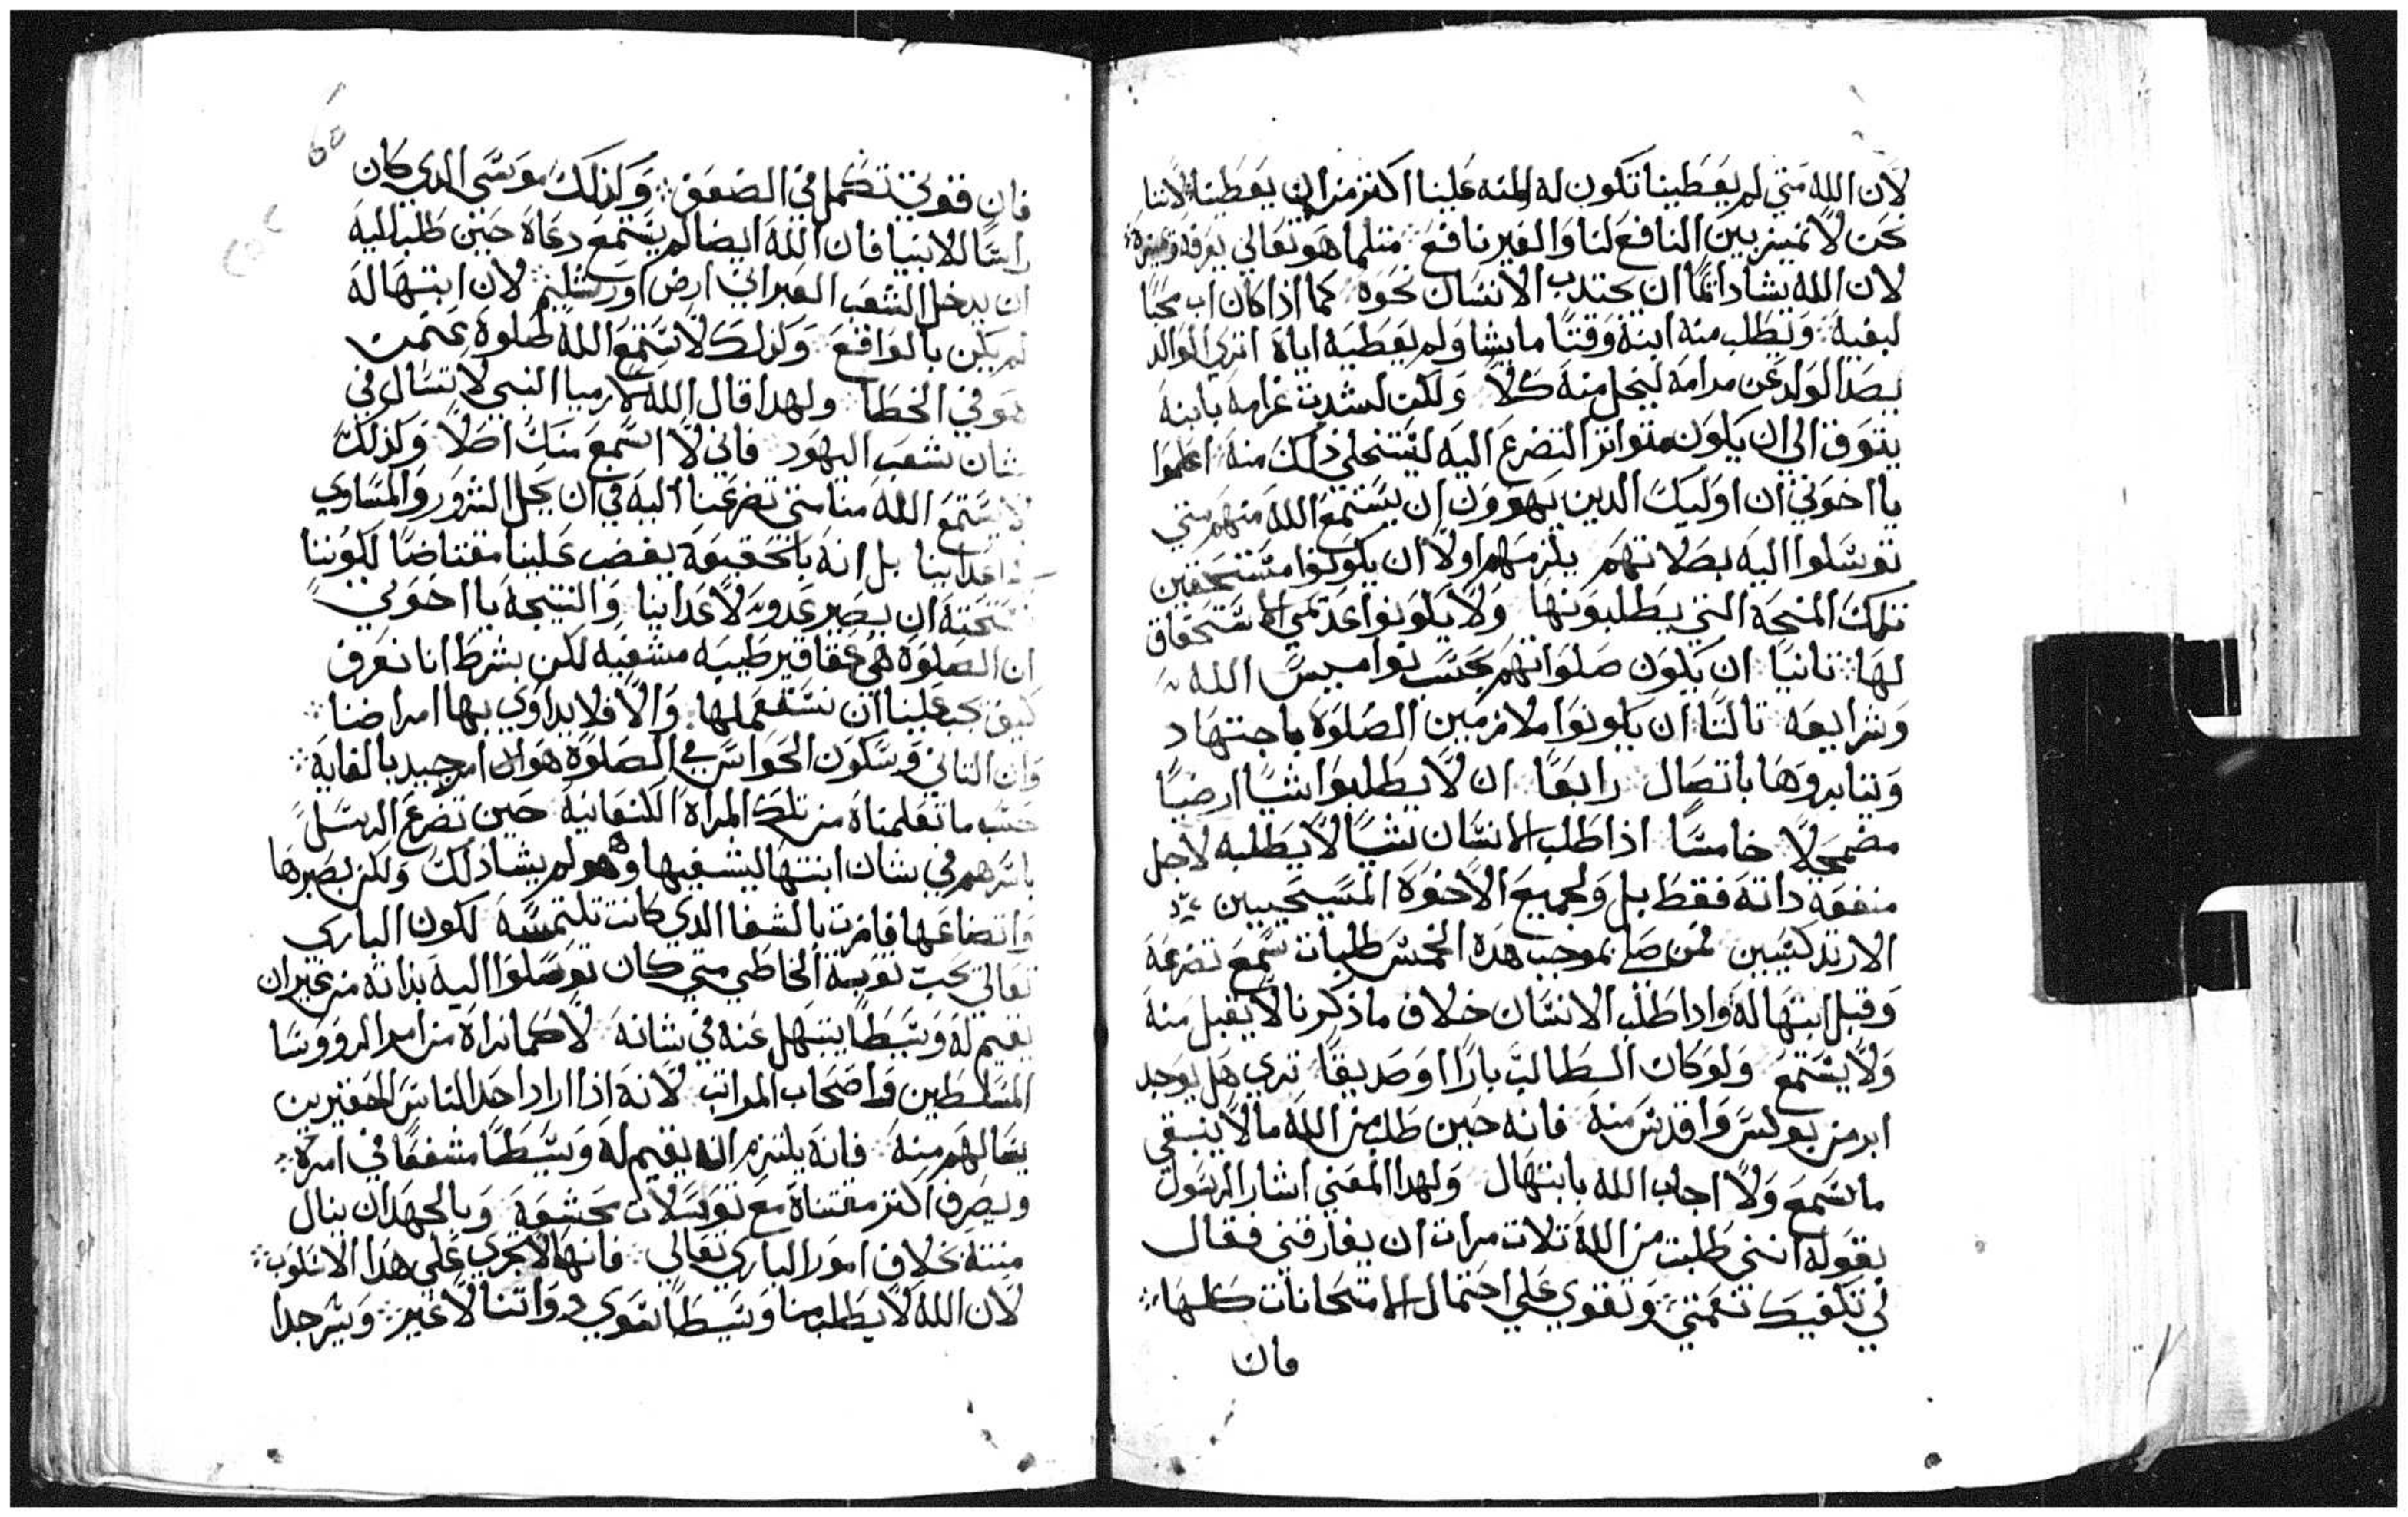 لان الله متي لم يعطينا تكون له المنه علينا اكثر من ان يعطينا لاننا
نحن لا نميز بين النافع لنا والغير نافع مثلما هو تعالي يعرفه ويميزه
لان الله يشا دائمًا ان يجتدب الانسان نحوه كما اذا كان اب محبًا
لبنيه ويطلب منه ابنه وقتًا ما يشا ولم يعطيه اياه اتري الوالد
يصد الولد عن مرامه لبخل منه كلا ولكن لشدت غرامه بابنه
يتوق الي ان يكون متواتر التضرع اليه ليستحلي ذلك منه اعلموا
يا اخوتي ان اوليك الدين يهوون ان يستمع الله منهم متي
توسلوا اليه بصلاتهم يلزمهم اولًا ان يكونوا مستحقين
تلك المنحة التي يطلبونها ولا يكونوا عدمي الاستحقاق
لها ثانيًا ان يكون صلواتهم بحسب نواميس الله
وشرايعه ثالثًا ان يكونوا ملازمين الصلوة باجتهاد
ويثابروها باتصال رابعًا ان لا يطلبوا شيًا ارضيًا
مضمحلًا خامسًا اذا طلب الانسان شيًا لا يطلبه لاجل
منفعة داته فقط بل ولجميع الاخوة المسيحيين
الارتدكسيين فمن صلي بموجب هده الخمس طلبات سمع تضرعه
وقبل ابتهاله وادا طلب الانسان خلاف ما ذكرنا لا يقبل منه
ولا يستمع ولو كان الطالب بارًا او صديقًا تري هل يوجد
ابر من بولس واقدس منه فانه حين طلب من الله ما لا ينبغي
ما سمع ولا اجاب الله بابتهال ولهدا المعني اشار الرسول
بقوله انني طلبت من الله تلات مرات ان يفارقني فقال
لي تكفيك نعمتي وتقوي علي احتمال الامتحانات كلها
فان
فان قوتي تكمل في الضعف ولذلك موسي الدي كان
راسًا للانبيا فان الله ايضا لم يستمع دعاه حين طلب اليه
ان يدخل الشعب العبراني ارض اورشليم لان ابتهاله
لم يكن بالواقع ولذلك لا يستمع الله صلوة
هو في الخطا ولهدا قال الله لارميا النبي لا تسال في
شان شعب اليهود فاني لا اسمع منك اصلًا ولذلك
لا يستمع الله منا متي تضرعنا اليه في ان يحل الشرور والمساوي
باعداينا بل انه بالحقيقة يغضب علينا مغتاضًا لكوننا
ان يصير عدو لاعداينا والنتيجة يا اخوتي
ان الصلوة هي عقاقير طبيه مشفيه لكن بشرط انا نعرف
كيف يجب علينا ان نستعملها والا فلا يداوي بها امراضنا
وان التاني وسكون الحواس في الصلوة هو امر جيد بالغاية
حسب ما تعلمناه من تلك المراة الكنعانية حين تضرع الرسل
باسرهم في شان ابنتها ليشفيها وهو لم يشا ذلك ولكن بصبرها
واتضاعها فازت بالشفا الدي كانت تلتمسه لكون الباري
تعالي يحب توبة الخاطي متي كان توسلوا اليه بداته من غير ان
يقيم له وسيطًا يبتهل عنه في شانه لا كما نراه من امر الروؤسا
المسلطين واصحاب المراتب لانه اذا اراد احد الناس الحقيرين
يسالهم منة فانه يلتزم انه يقيم له وسيطًا مشفقًا في امره
ويصرف اكثر مقتناه مع توسلات بحشمة وبالجهد ان ينال
منته بخلاف امور الباري تعالي فانها لا تجري علي هدا الاسلوب
لان الله لا يطلب منا وسيطًا سوي دواتنا لا غير ويسر جدا